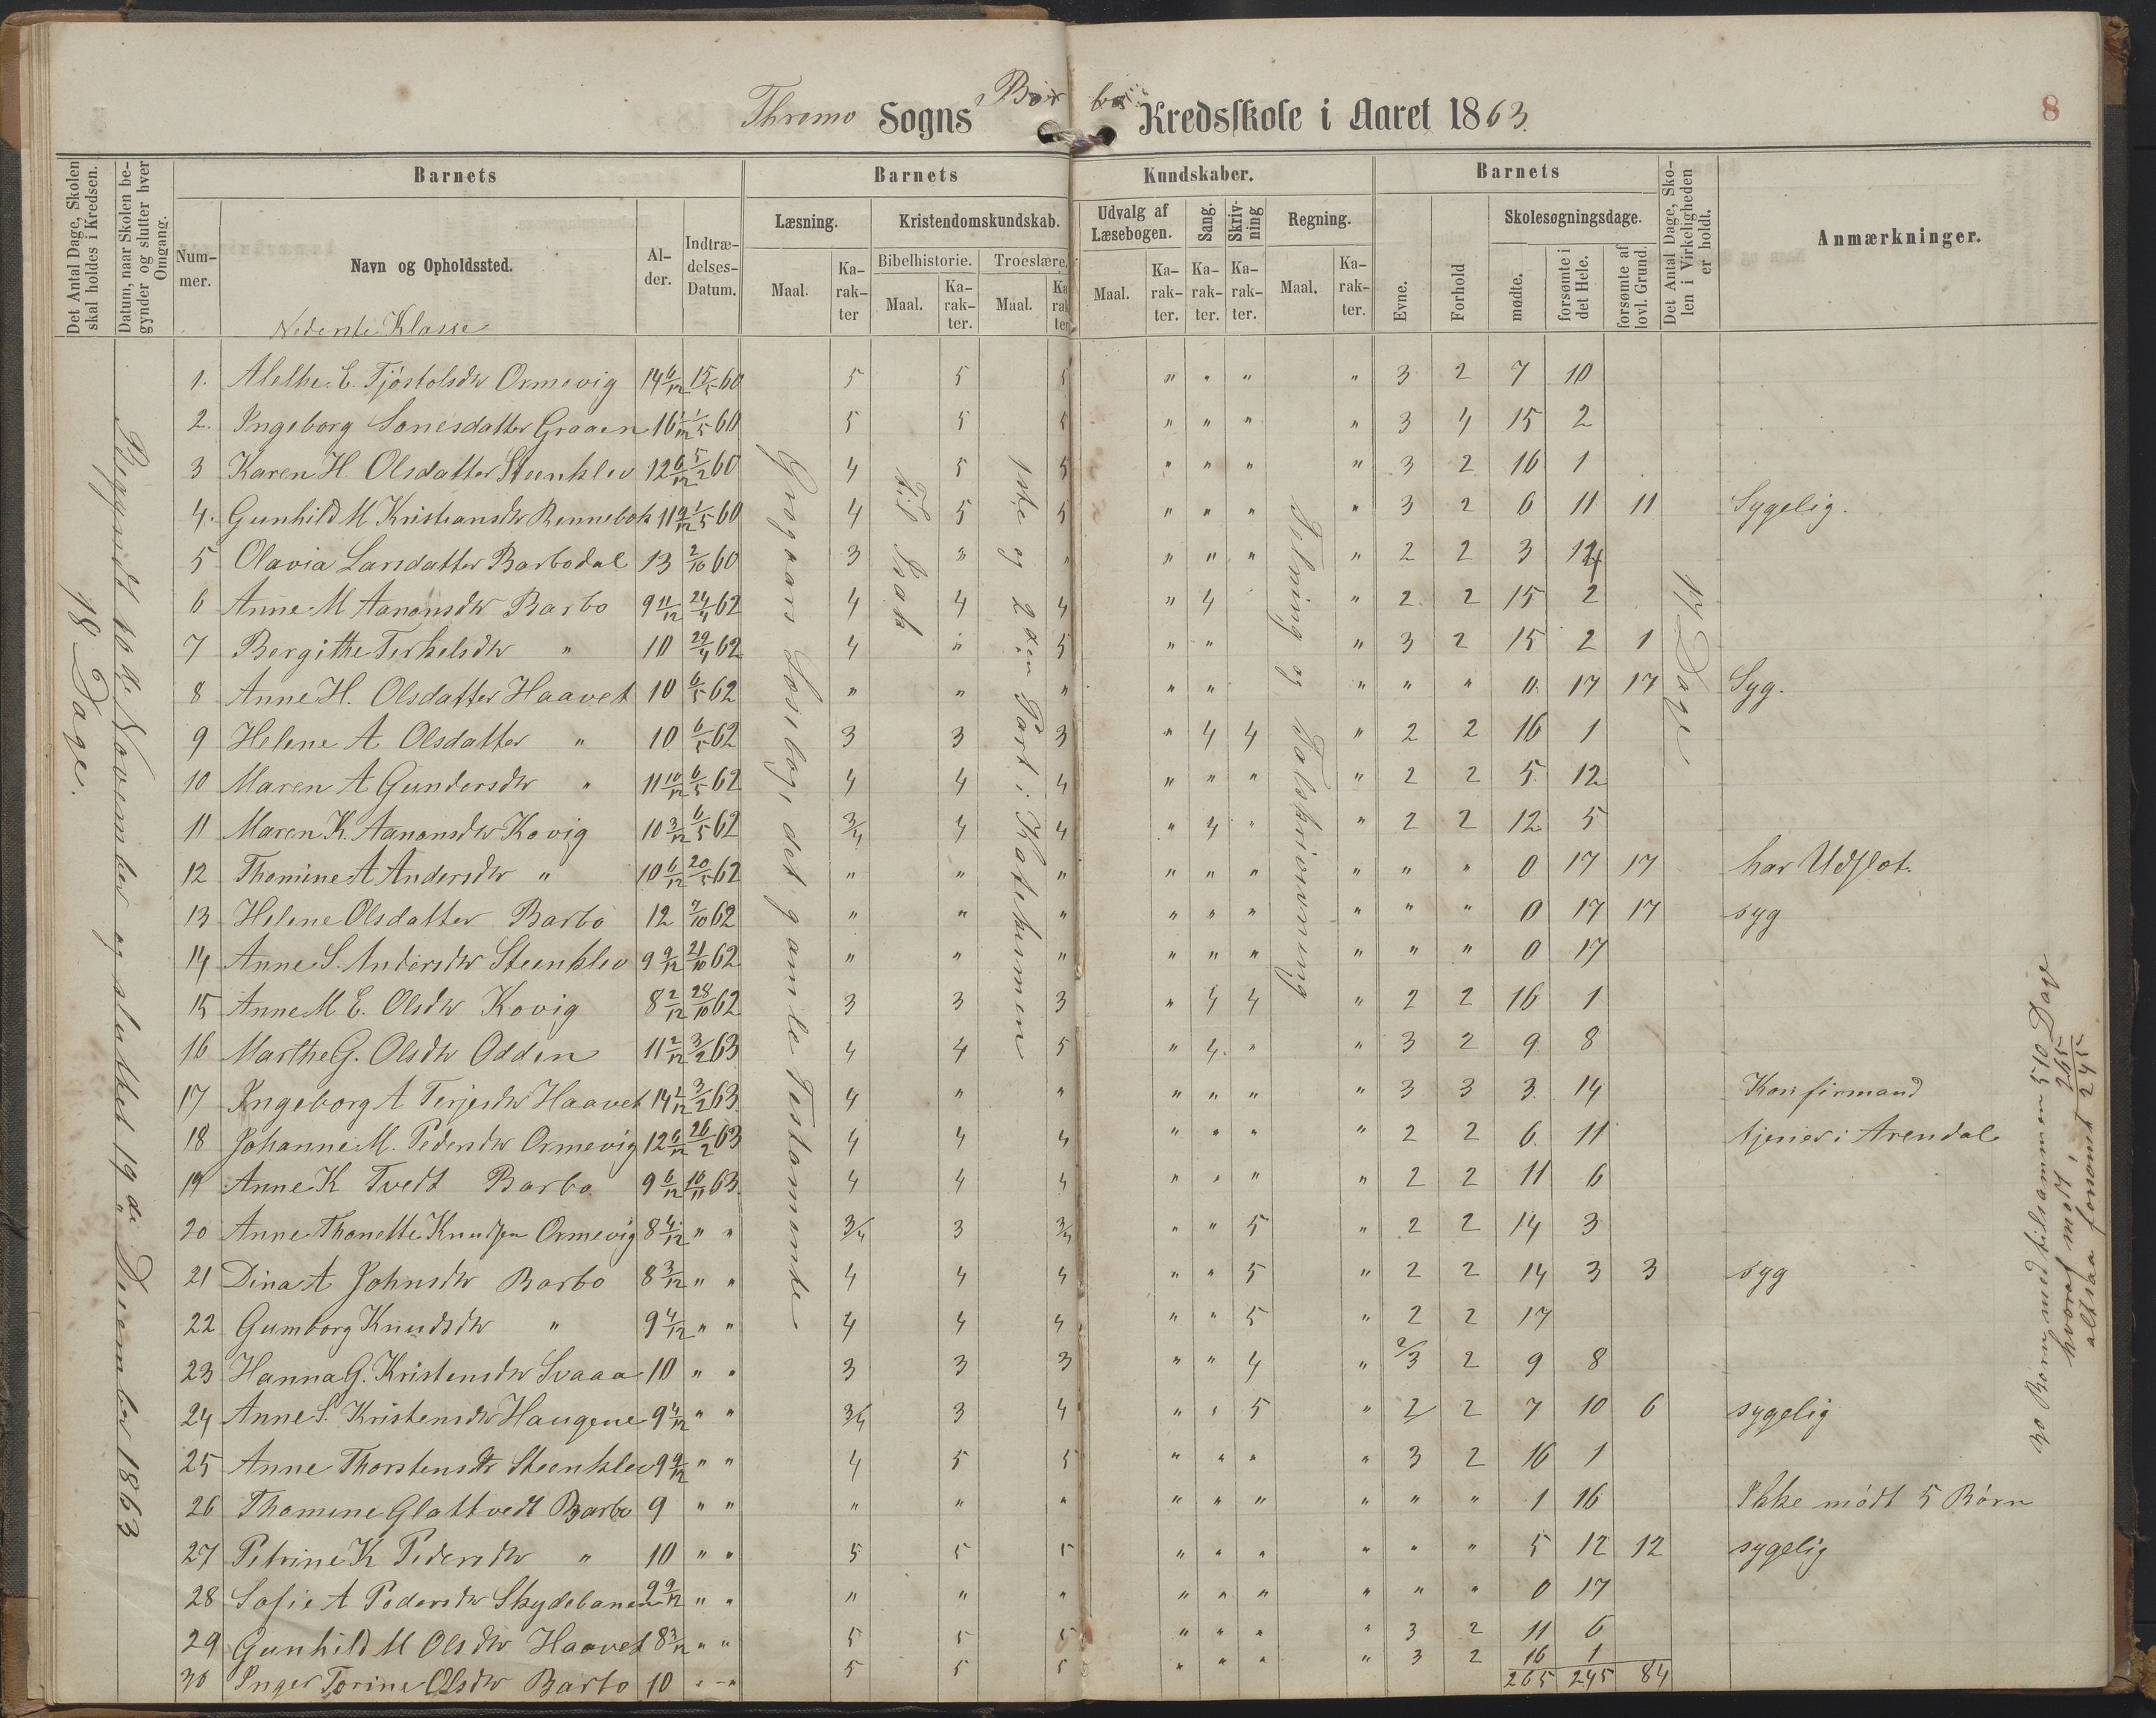 Thromo Sogns Bar bo Kredsskole i Aaret 1863.
8
Det Antal Dage, Skolen skal holdes i Kredsen.
Datum, naar Skolen begynder og slutter hver Omgang.
Barnets
Barnets
Kundskaber.
Barnets
Det Antal Dage, Skolen i Virkeligheden er holdt.
Anmærkninger.
Nummer.
Navn og Opholdssted.
Alder.
Indtrædelses-Datum.
Læsning.
Kristendomskundskab.
Udvalg af Læsebogen.
Sang.
Skrivning
Regning.
Evne.
Forhold
Skolesøgningsdage.
Bibelhistorie.
Troeslære.
Maal.
Karakter
Maal.
Karakter.
Maal.
Karakter
Maal.
Karakter.
Karakter.
Karakter.
Maal.
Karakter.
mødte.
forsømte i det Hele.
forsømte af lovl. Grund.
Nederste Klasse
18 Dage.
Begyndt 10de November og sluttet 19de Desember 1863
Grogaars Læsebog, det gamle Testamente
Til Isak
1ste og 2den Part i Katekismen
Tælning og Talskrivning
17 Dage
1. Alethe E. Tjøstolsdtr Ormevig 14 6/12 15/5 60 5 5 5 " " " " 3 2 7 10
2. Ingeborg Sonesdatter Graaen 16 1/12 1/5 60 5 5 5 " " " " 3 4 15 2
3 Karen H Olsdatter Steenklev 12 6/12 5/2 60 4 5 5 " " " " 3 2 16 1
4. Gunhild M Kristiansdtr Rennebok 11 9/12 1/5 60 4 5 5 " " " " 3 2 6 11 11 Sygelig.
5 Olavia Larsdatter Barbodal 13 2/10 60 3 " " " " " " 2 2 3 14
6 Anne M Aanonsdtr Barbo 9 11/12 24/4 62 4 4 4 " 4 " 2 2 15 2
7 Bergithe Terkelsdtr " 10 29/4 62 4 " 5 " " " 3 2 15 2 1
8 Anne H. Olsdatter Haavet 10 6/5 62 " " " " " " " " 0 17 17 Syg.
9 Helene A Olsdatter " 10 6/5 62 3 3 3 " 4 4 " 2 2 16 1
10 Maren A Gundersdtr " 11 10/12 6/5 62 4 4 4 " " " " 2 2 5 12
11 Maren K. Aanonsdtr Kovig 10 3/12 6/5 62 3/4 4 4 " 4 " " 2 2 12 5
12 Thomine A Andersdtr " 10 6/12 20/5 62 " " " " " " " " " 0 17 17 har Udslæt.
13 Helene Olsdatter Barbo 12 7/10 62 " " " " " " " " " 0 17 17 syg
14 Anne S. Andersdtr Steenklev 9 9/12 21/10 62 " " " " " " " " " 0 17
15 Anne M E. Olsdtr Kovig 8 2/12 28/10 62 3 3 3 " 4 4 " 2 2 16 1
16 Marthe G. Olsdtr Odden 11 2/12 3/2 63 4 4 5 " 4. " " 3 2 9 8
17 Ingeborg A Terjesdtr Haavet 14 1/12 3/2 63 4 " " " " " " 3 3 3 14 Konfirmand
18 Johanne M. Pedersdtr Ormevig 12 6/12 26/2 63 4 4 4 " " " " 2 2 6 11 tjener i Arendal
19 Anne K Tvedt Barbo 9 6/12 10/11 63 4 4 4 " " " " 2 2 11 6
20 Anne Thonette Knudsen Ormevig 8 4/12 " " 3/4 3 3/4 " " 5 " 2 2 14 3
21 Dina A Johnsdtr Barbo 8 3/12 " " 4 4 4 " " 5 " 2 2 14 3 3 syg
22 Gumborg Knudsdtr " 9 4/12 " " 4 4 4 " " 5 " 2 2 17
23 Hanna G. Kristensdtr Svaaa 10 " " 3 3 3 " " 4 " 2/3 2 9 8
24 Anne S. Kristensdtr Haugene 9 4/12 " " 3/4 3 4 " " 5 " 2 2 7 10 6 sygelig
25 Anne Thorstensdtr Steenklev 9 9/12 " " 4 5 5 " " " " 3 2 16 1
26 Thomine Glattvedt Barbo 9 " " " " " " " " " " " 1 16 Ikke mødt 5 Børn
27 Petrine K Pedersdtr " 10 " " 5 5 5 " " " " " " 5 12 12 sygelig
28 Sofie A Pedersdtr Skydebanen 9 9/12 " " " " " " " " " " " 0 17
29 Gunhild M Olsdtr Haavet 8 3/12 " " 5 5 5 " " " " 3 2 11 6
30 Inger Torine Olsdtr Barbo 10 " " 5 5 5 " " " " 3 2 16 1
265 245 84
30 Børn med tilsammen 510 Dage
hvoraf mødt, 265
altsaa forsømt 245